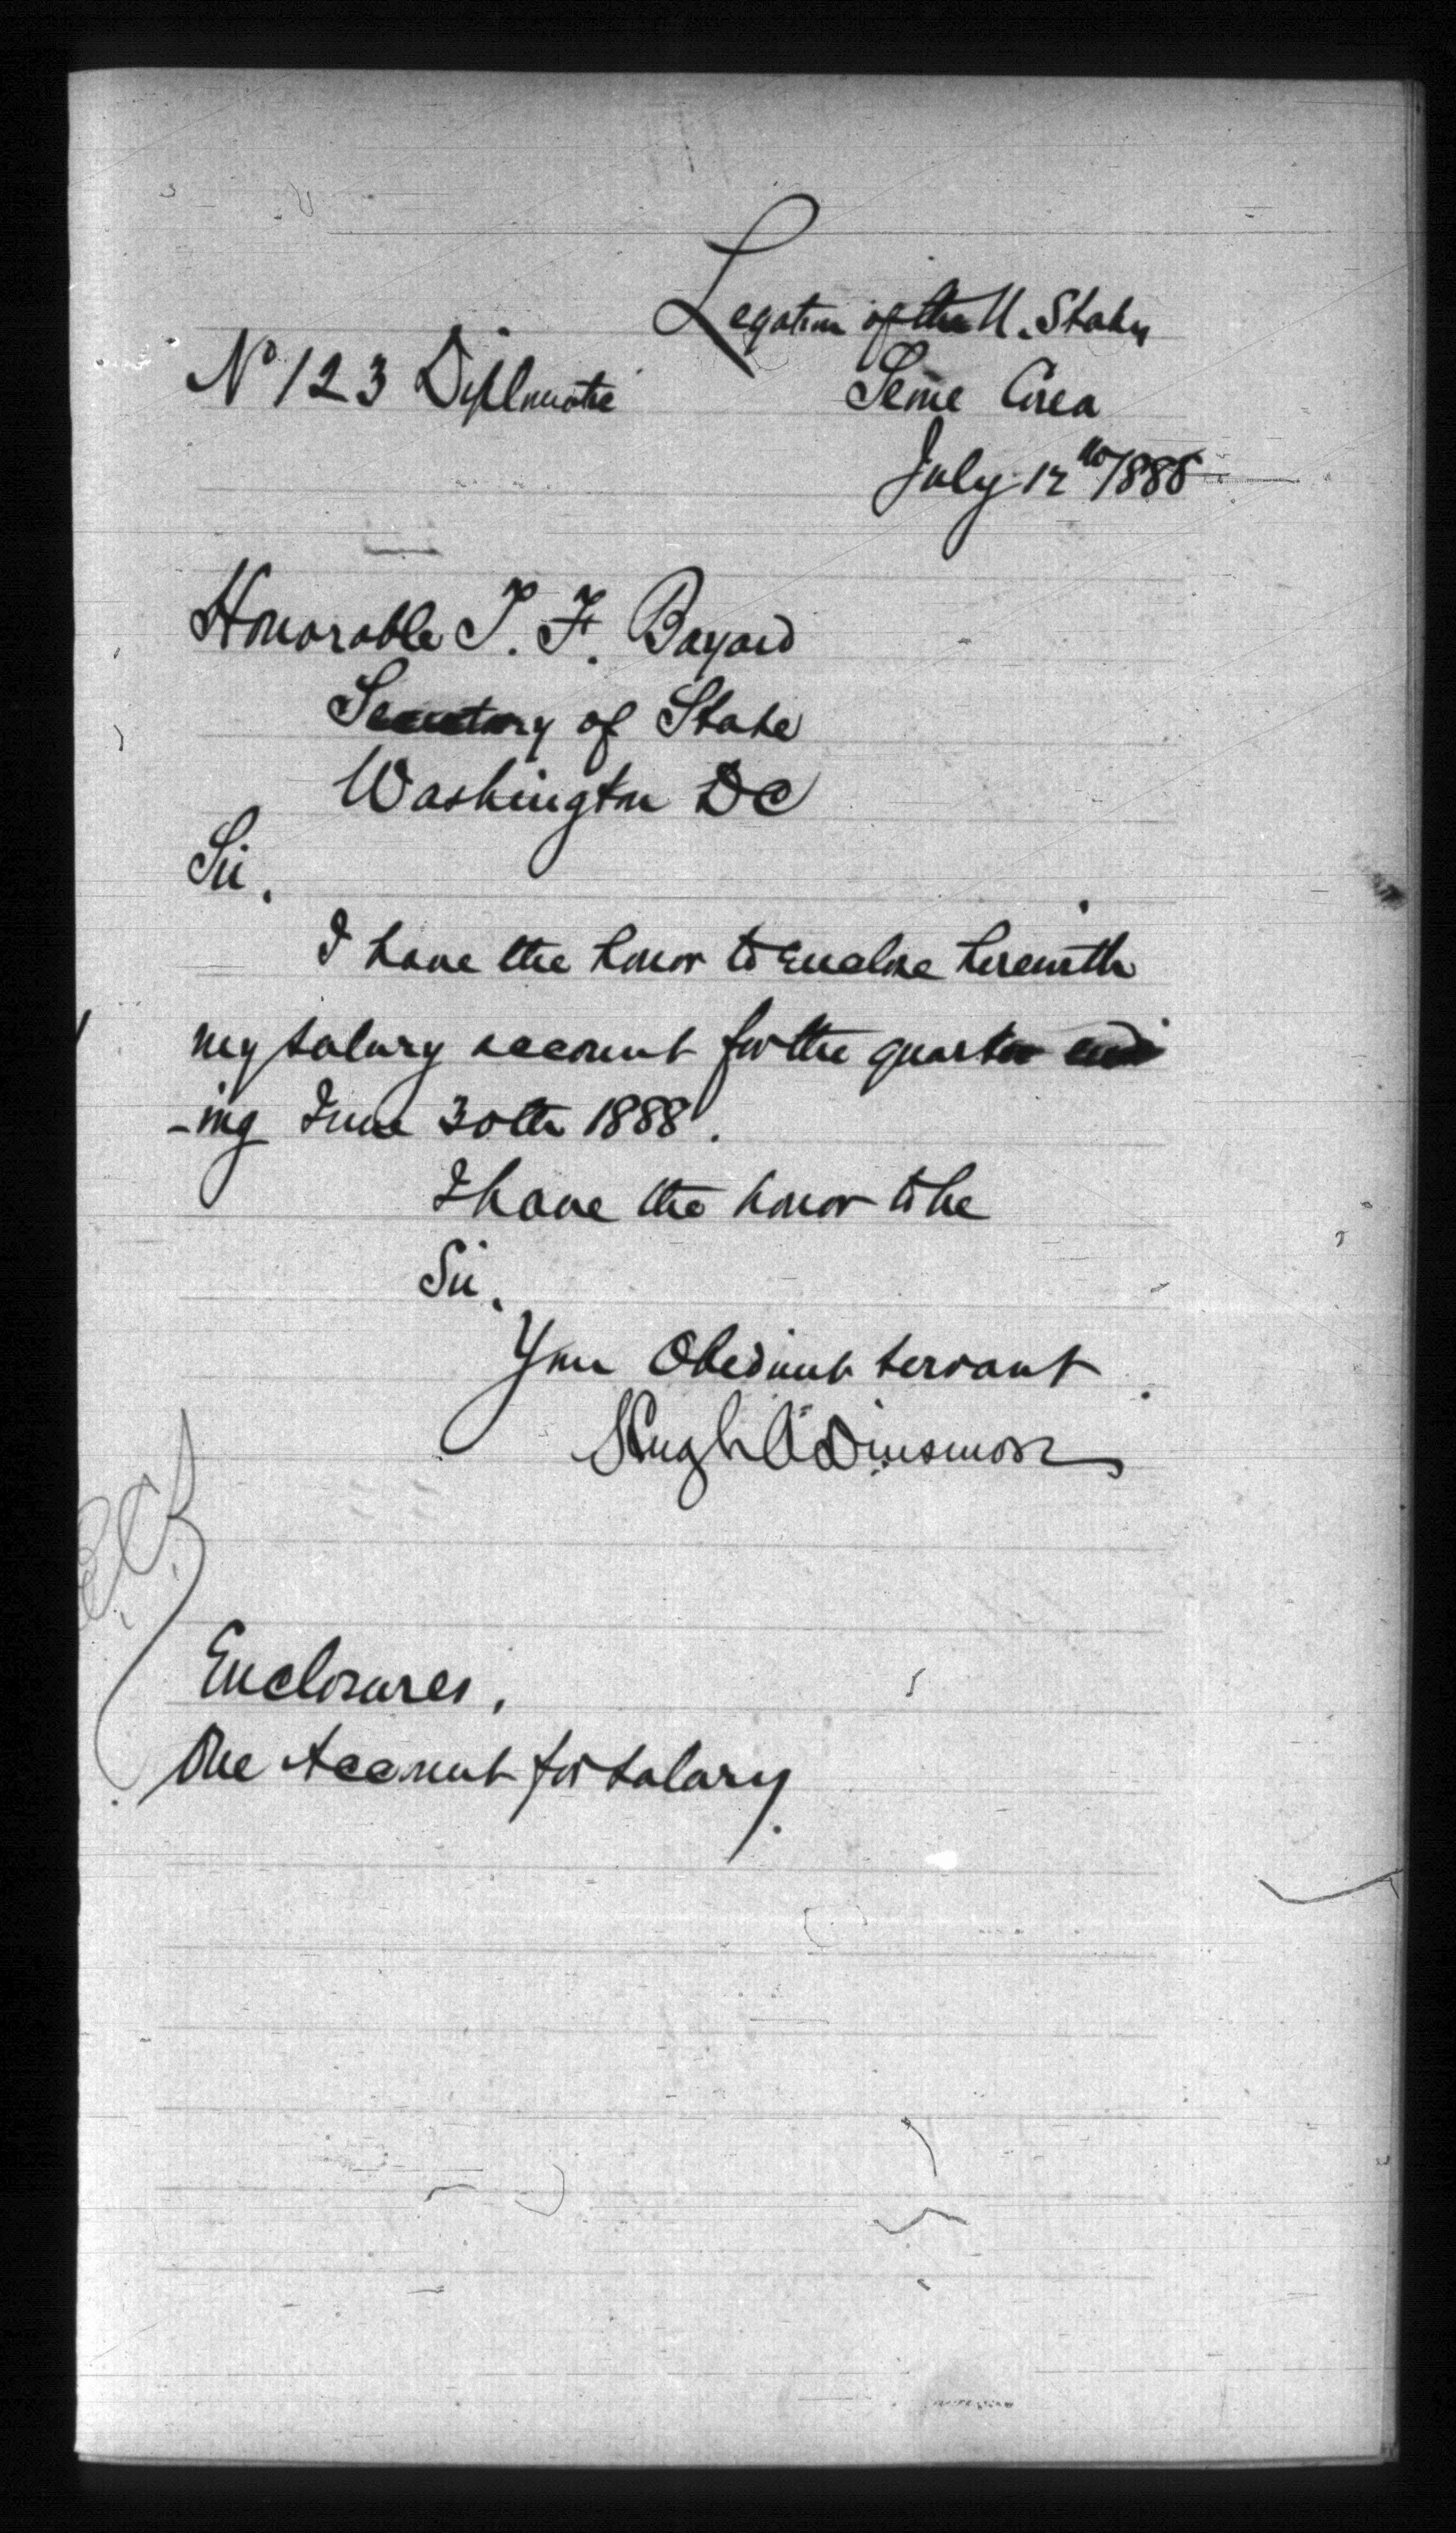 Legation of the U. States
No 123 Diplomatic
Seoul Corea
July 12th 1888
Honorable T. F. Bayard
Secretary of State
Washington DC
Sir,
I have the honor to enclose herewith
my salary account for the quarter end
-ing June 30th 1888.
I have the honor to be
Sir,
Your Obedient servant.
Hugh A Dinsmore
Enclosures,
One Account for salary.